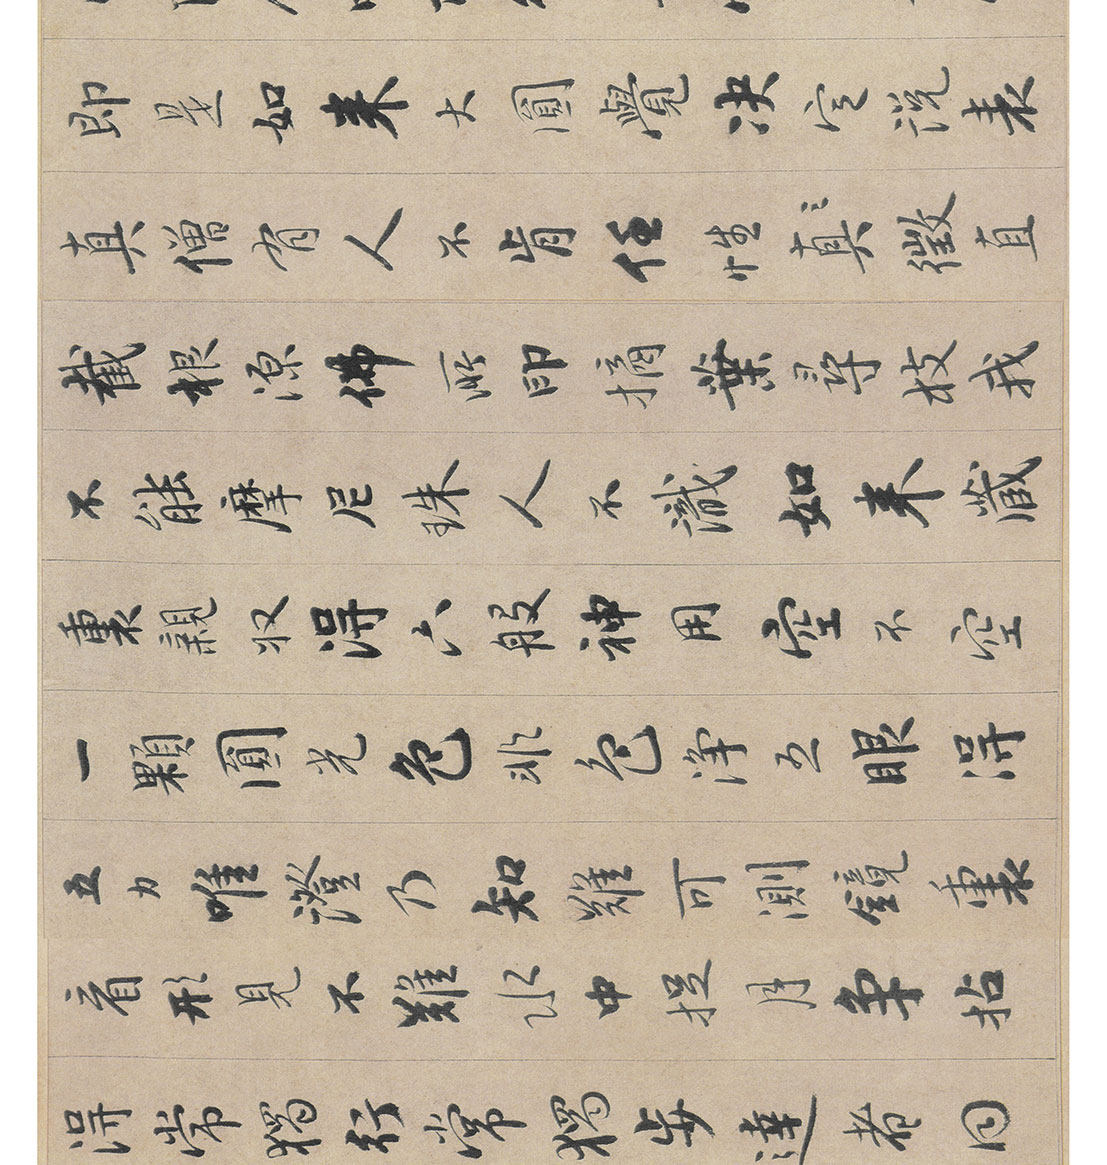 即是如来大圓覺決定説表
真僧有人不肯任情真徵直
截根源佛所印摘葉尋枝我
不能摩尼珠人不識如来藏
裏親収得六般神用空不空
一顆圓光色非色淨五眼得
五力唯澄乃知難可測鏡裏
看形見不難水中捉月争拈
得常獨行常獨步達者同